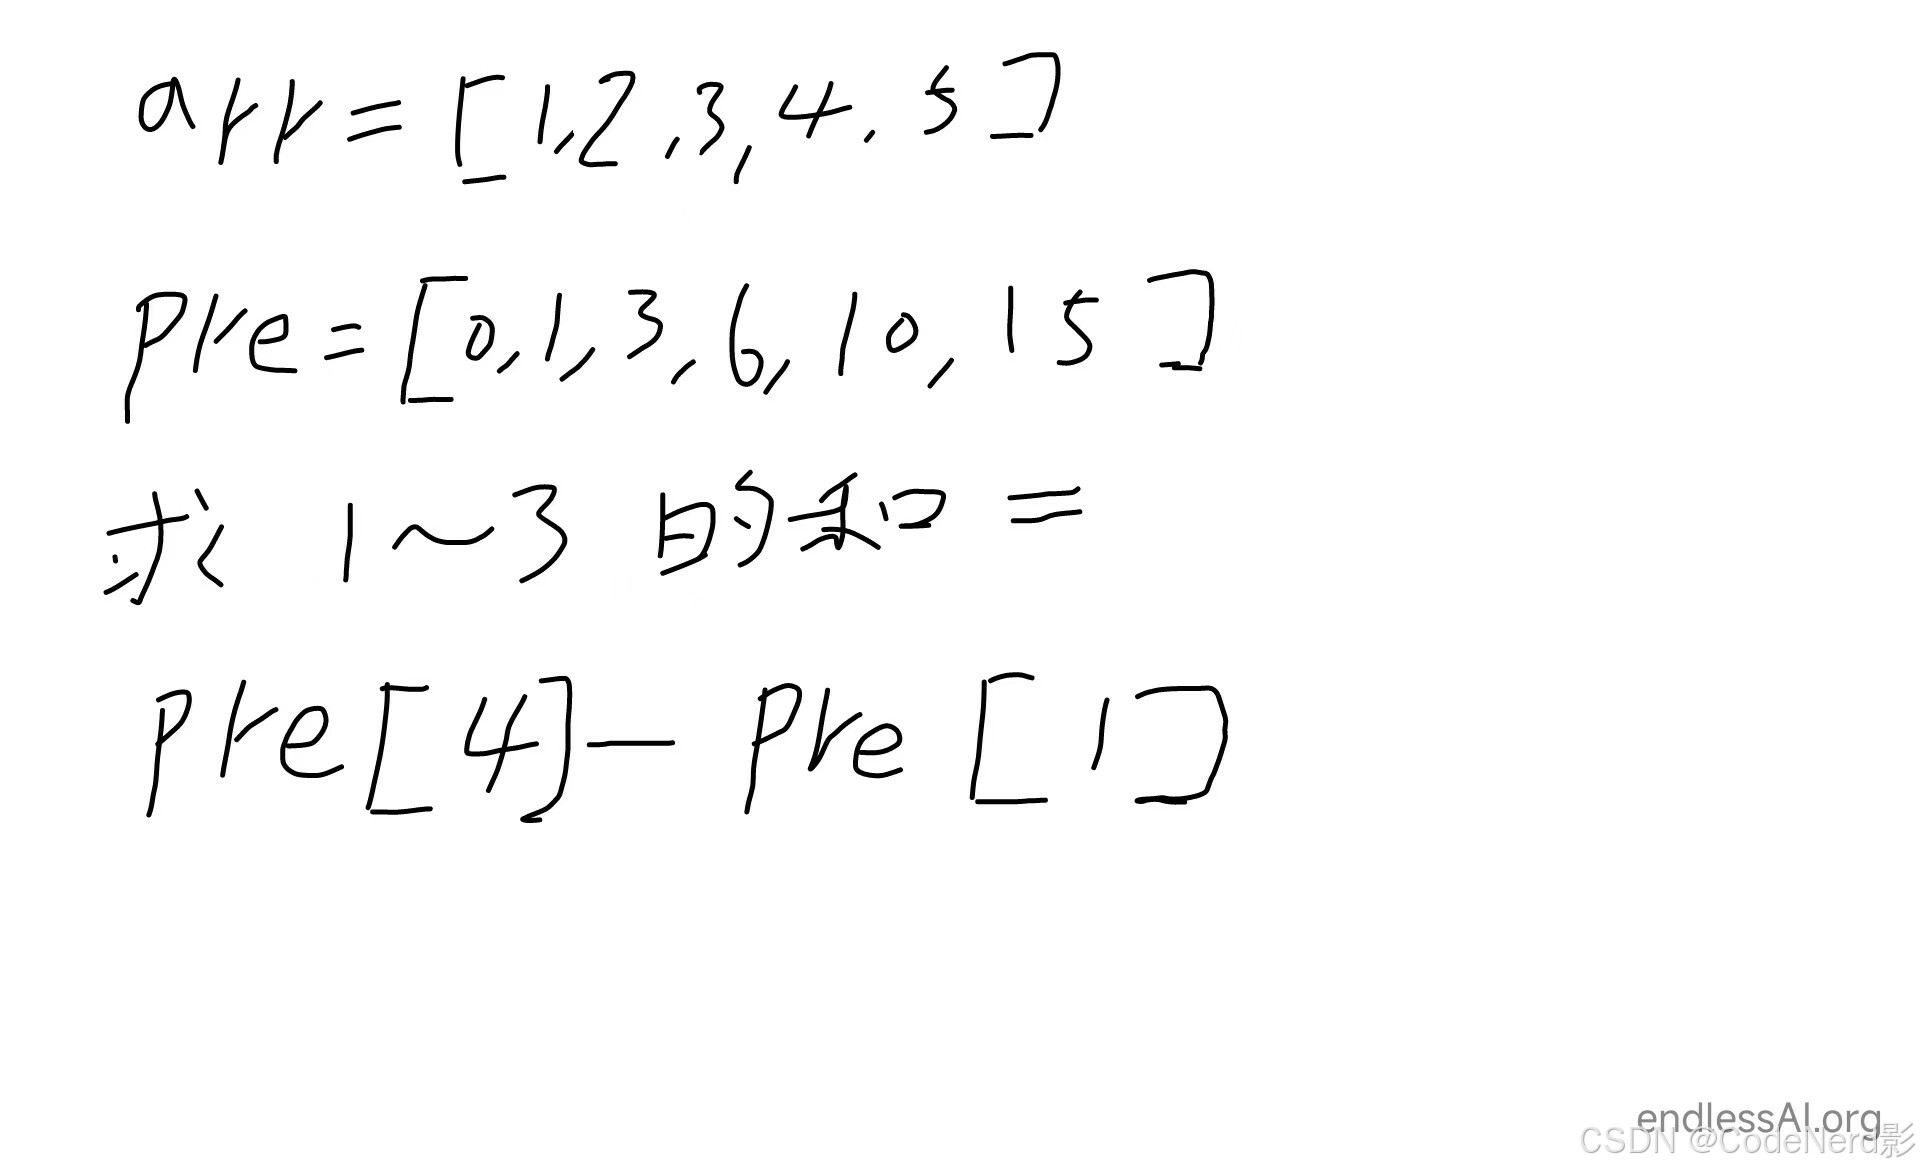 arr = [1,2,3,4,5]
pre = [0,1,3,6,10,15]
求 1~3 的和 =
pre[4] - pre[1]
endlessAI.org
CSDN @CodeNerd影